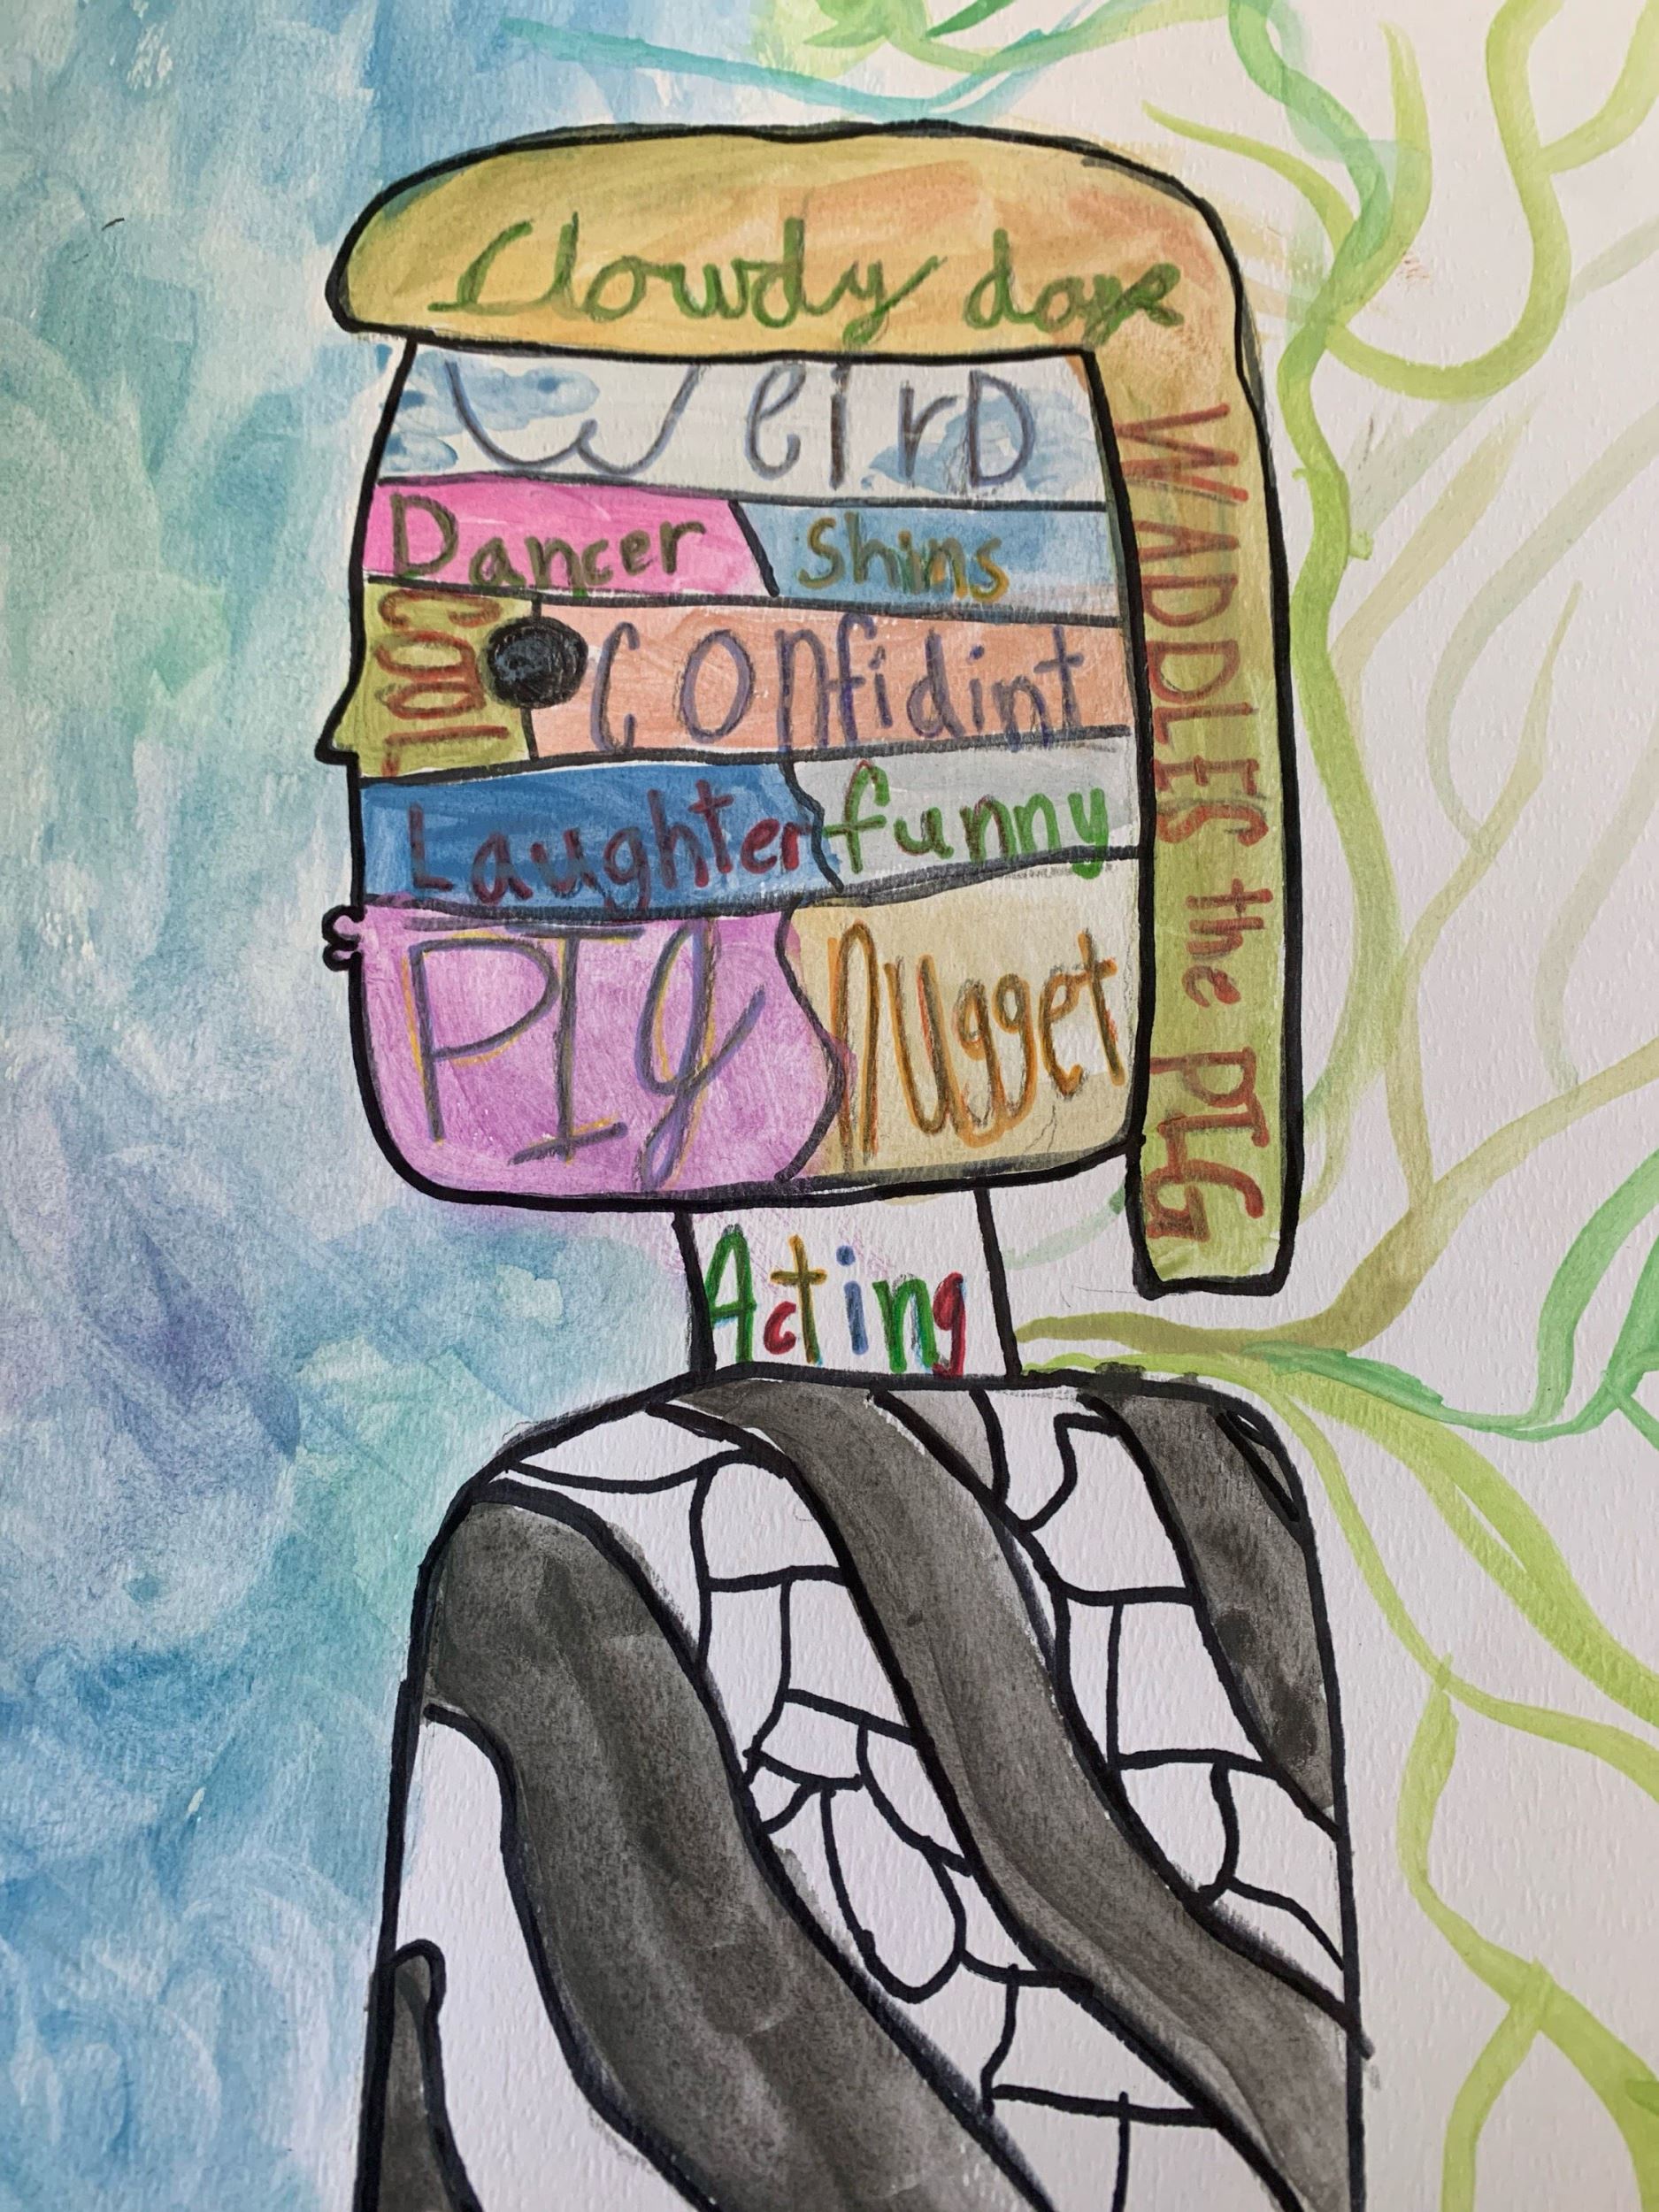 Cloudy days
WeIrD
Dancer
Shins
COOL
CONfidint
Laughter
funny
PIg
Nugget
WADDLES the PIG
Acting